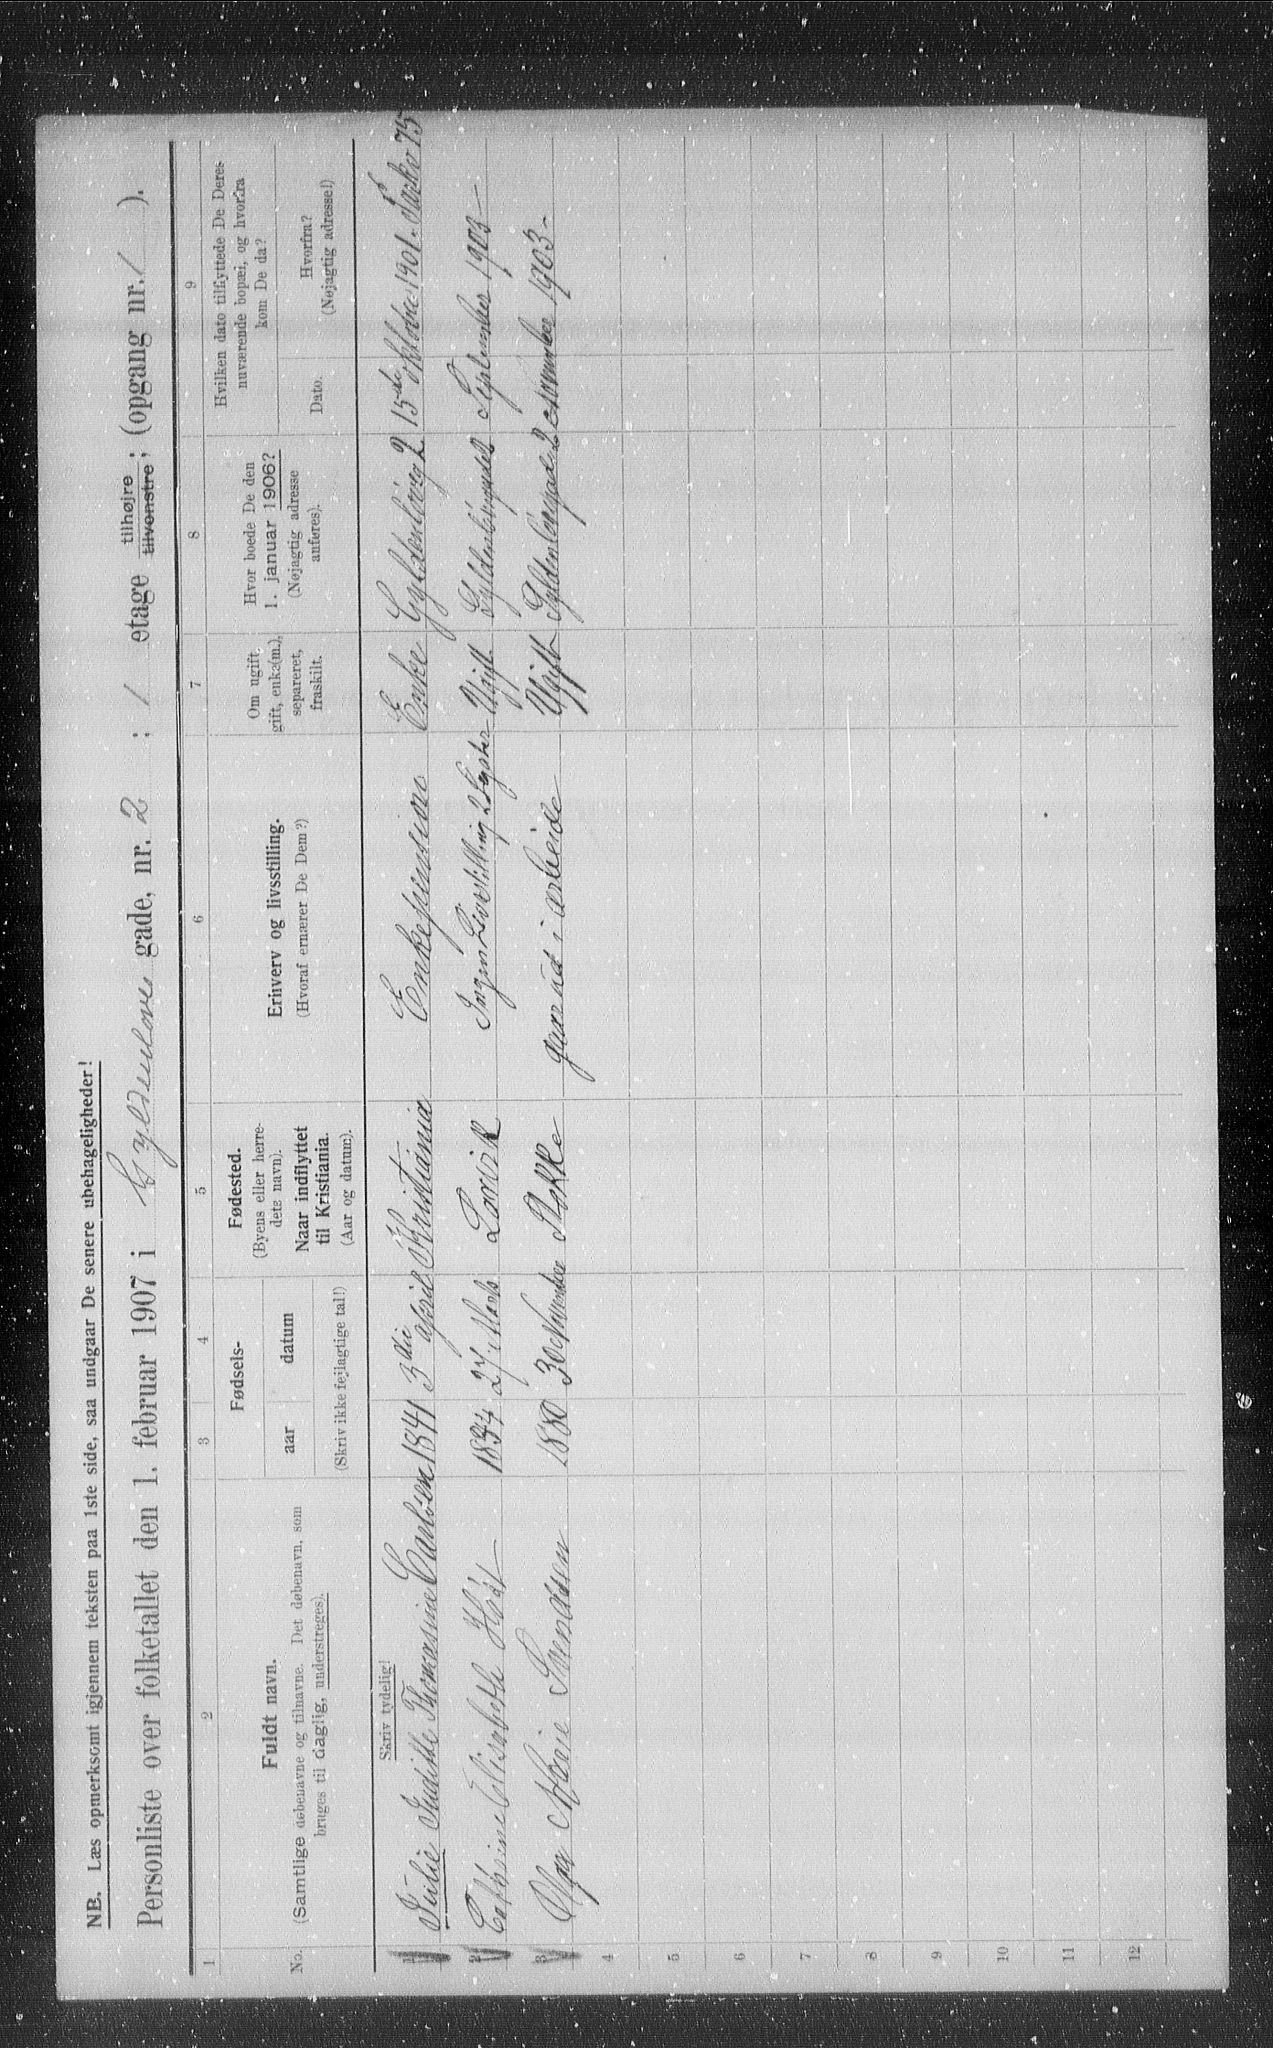 NB. Læs opmerksomt igjennem teksten paa 1ste side, saa undgaar De senere ubehageligheder!
Personliste over folketallet den 1. februar 1907 i Gyldenløves gade, nr. 2 : 1 etage tilhøjre tilvenstre; (opgang nr. 1 ).
1 2 3 4 5 6 7 8 9
No.
Fuldt navn.
(Samtlige døbenavne og tilnavne. Det døbenavn, som
bruges til daglig, understreges).
Fødsels-
aar datum
(Skriv ikke fejlagtige tal!)
Fødested.
(Byens eller herre-
dets navn).
Naar indflyttet
til Kristiania.
(Aar og datum).
Erhverv og livsstilling.
(Hvoraf ernærer De Dem?)
Om ugift,
gift, enke(m.),
separeret,
fraskilt.
Hvor boede De den
1. januar 1906?
(Nøjagtig adresse
anføres).
Hvilken dato tilflyttede De Deres
nuværende bopæl, og hvorfra
kom De da?
Dato.
Hvorfra?
(Nøjagtig adresse!)
Skriv tydelig!
1 Julie Juditte Thomasine Carlsen 1841 3die april Kristiania Enkepension Enke Gyldenløvsg 2 15de Oktober 1901. Parkv 75
2 Cathrine Elisabeth Høst 27 Marts Larvik Ingen Livstilling Ugift September 1903
3 Olga Marie Svendsen 1880 30 November Stokke gaar ud i arbeide Ugift Gyldenløvsgade 2 November 1903
4
5
6
7
8
9
10
11
12